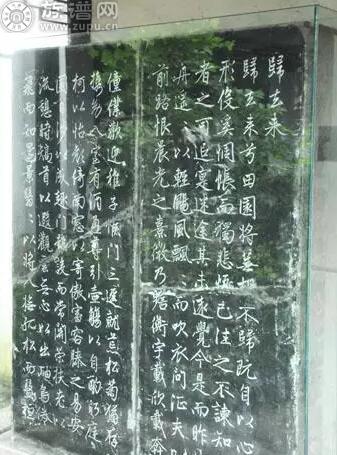 族谱网
www.zupu.cn
歸去来
歸去来兮田園將蕪胡不歸既自以心
形役奚惆悵而獨悲悟已往之不諫知
者之可追寔迷途其未遠覺今是而昨
舟遥以輕颺風飄而吹衣問征夫
前路恨晨光之熹微乃瞻衡宇載欣載奔
僮僕歡迎稚子候門三逕就荒松菊猶存
攜幼入室有酒盈尊引壺觴以自酌眄庭
柯以怡顏倚南窗以寄傲審容膝之易安
園日涉以成趣門雖設而常開策扶老以
流憩時矯首以遐觀雲無心以出岫鳥倦
飛而知還景翳〻以將入撫孤松而盤桓